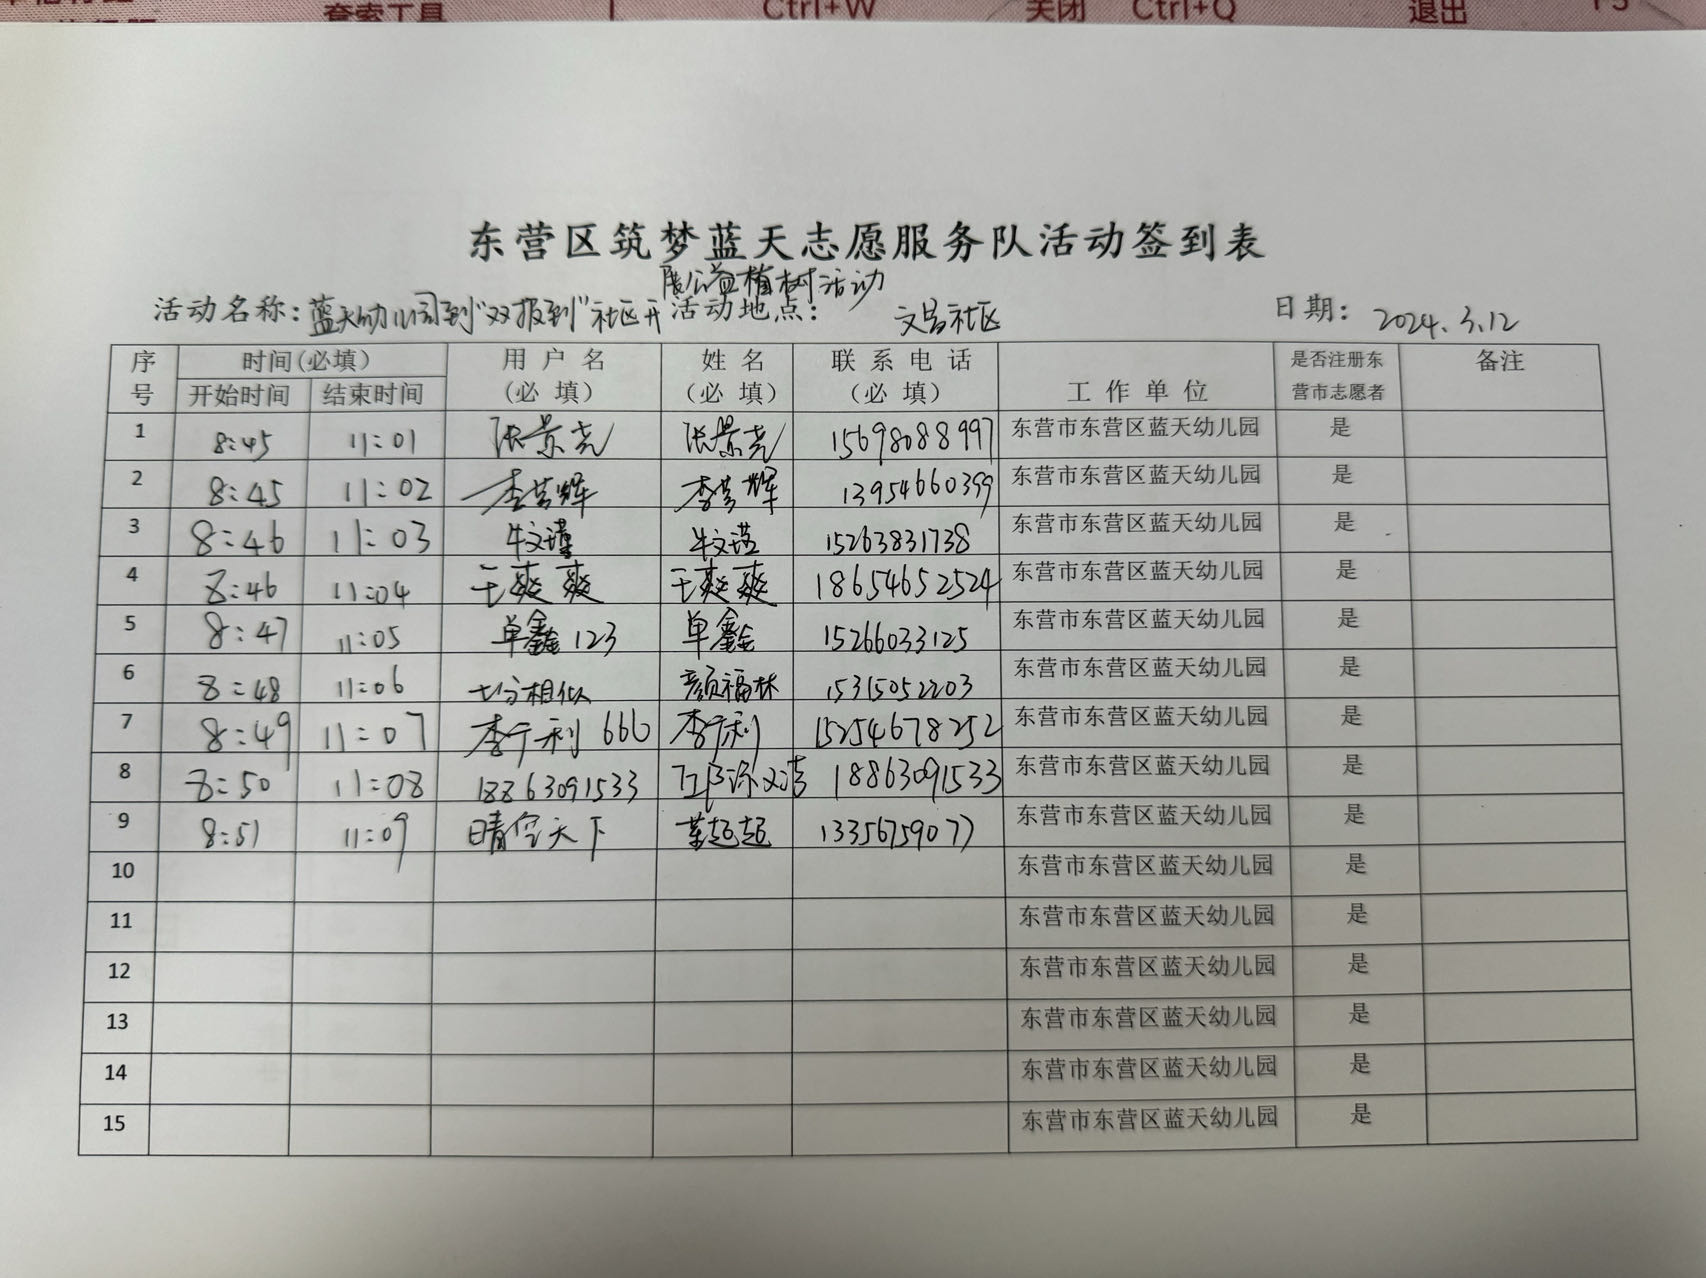 套索工具 Ctrl+W 关闭 Ctrl+Q 退出 F5
东营区筑梦蓝天志愿服务队活动签到表
展公益植树活动
活动名称：蓝天幼儿园到“双报到”社区开 活动地点： 文昌社区 日期： 2024.3.12
序号 时间(必填) 用户名(必填) 姓名(必填) 联系电话(必填) 工作单位 是否注册东营市志愿者 备注
开始时间 结束时间
1 8:45 11:01 张景尧 张景尧 15698088997 东营市东营区蓝天幼儿园 是
2 8:45 11:02 李芸辉 李芸辉 13954660399 东营市东营区蓝天幼儿园 是
3 8:46 11:03 牛文瑾 牛文瑾 15263831738 东营市东营区蓝天幼儿园 是
4 8:46 11:04 王爽爽 王爽爽 18654652524 东营市东营区蓝天幼儿园 是
5 8:47 11:05 单鑫123 单鑫 15266033125 东营市东营区蓝天幼儿园 是
6 8:48 11:06 七分相似 颜福林 15315052203 东营市东营区蓝天幼儿园 是
7 8:49 11:07 李于利666 李于利 15254678252 东营市东营区蓝天幼儿园 是
8 8:50 11:08 18863091533 18863091533 东营市东营区蓝天幼儿园 是
9 8:51 11:09 晴空天下 董起起 13356759077 东营市东营区蓝天幼儿园 是
10 东营市东营区蓝天幼儿园 是
11 东营市东营区蓝天幼儿园 是
12 东营市东营区蓝天幼儿园 是
13 东营市东营区蓝天幼儿园 是
14 东营市东营区蓝天幼儿园 是
15 东营市东营区蓝天幼儿园 是